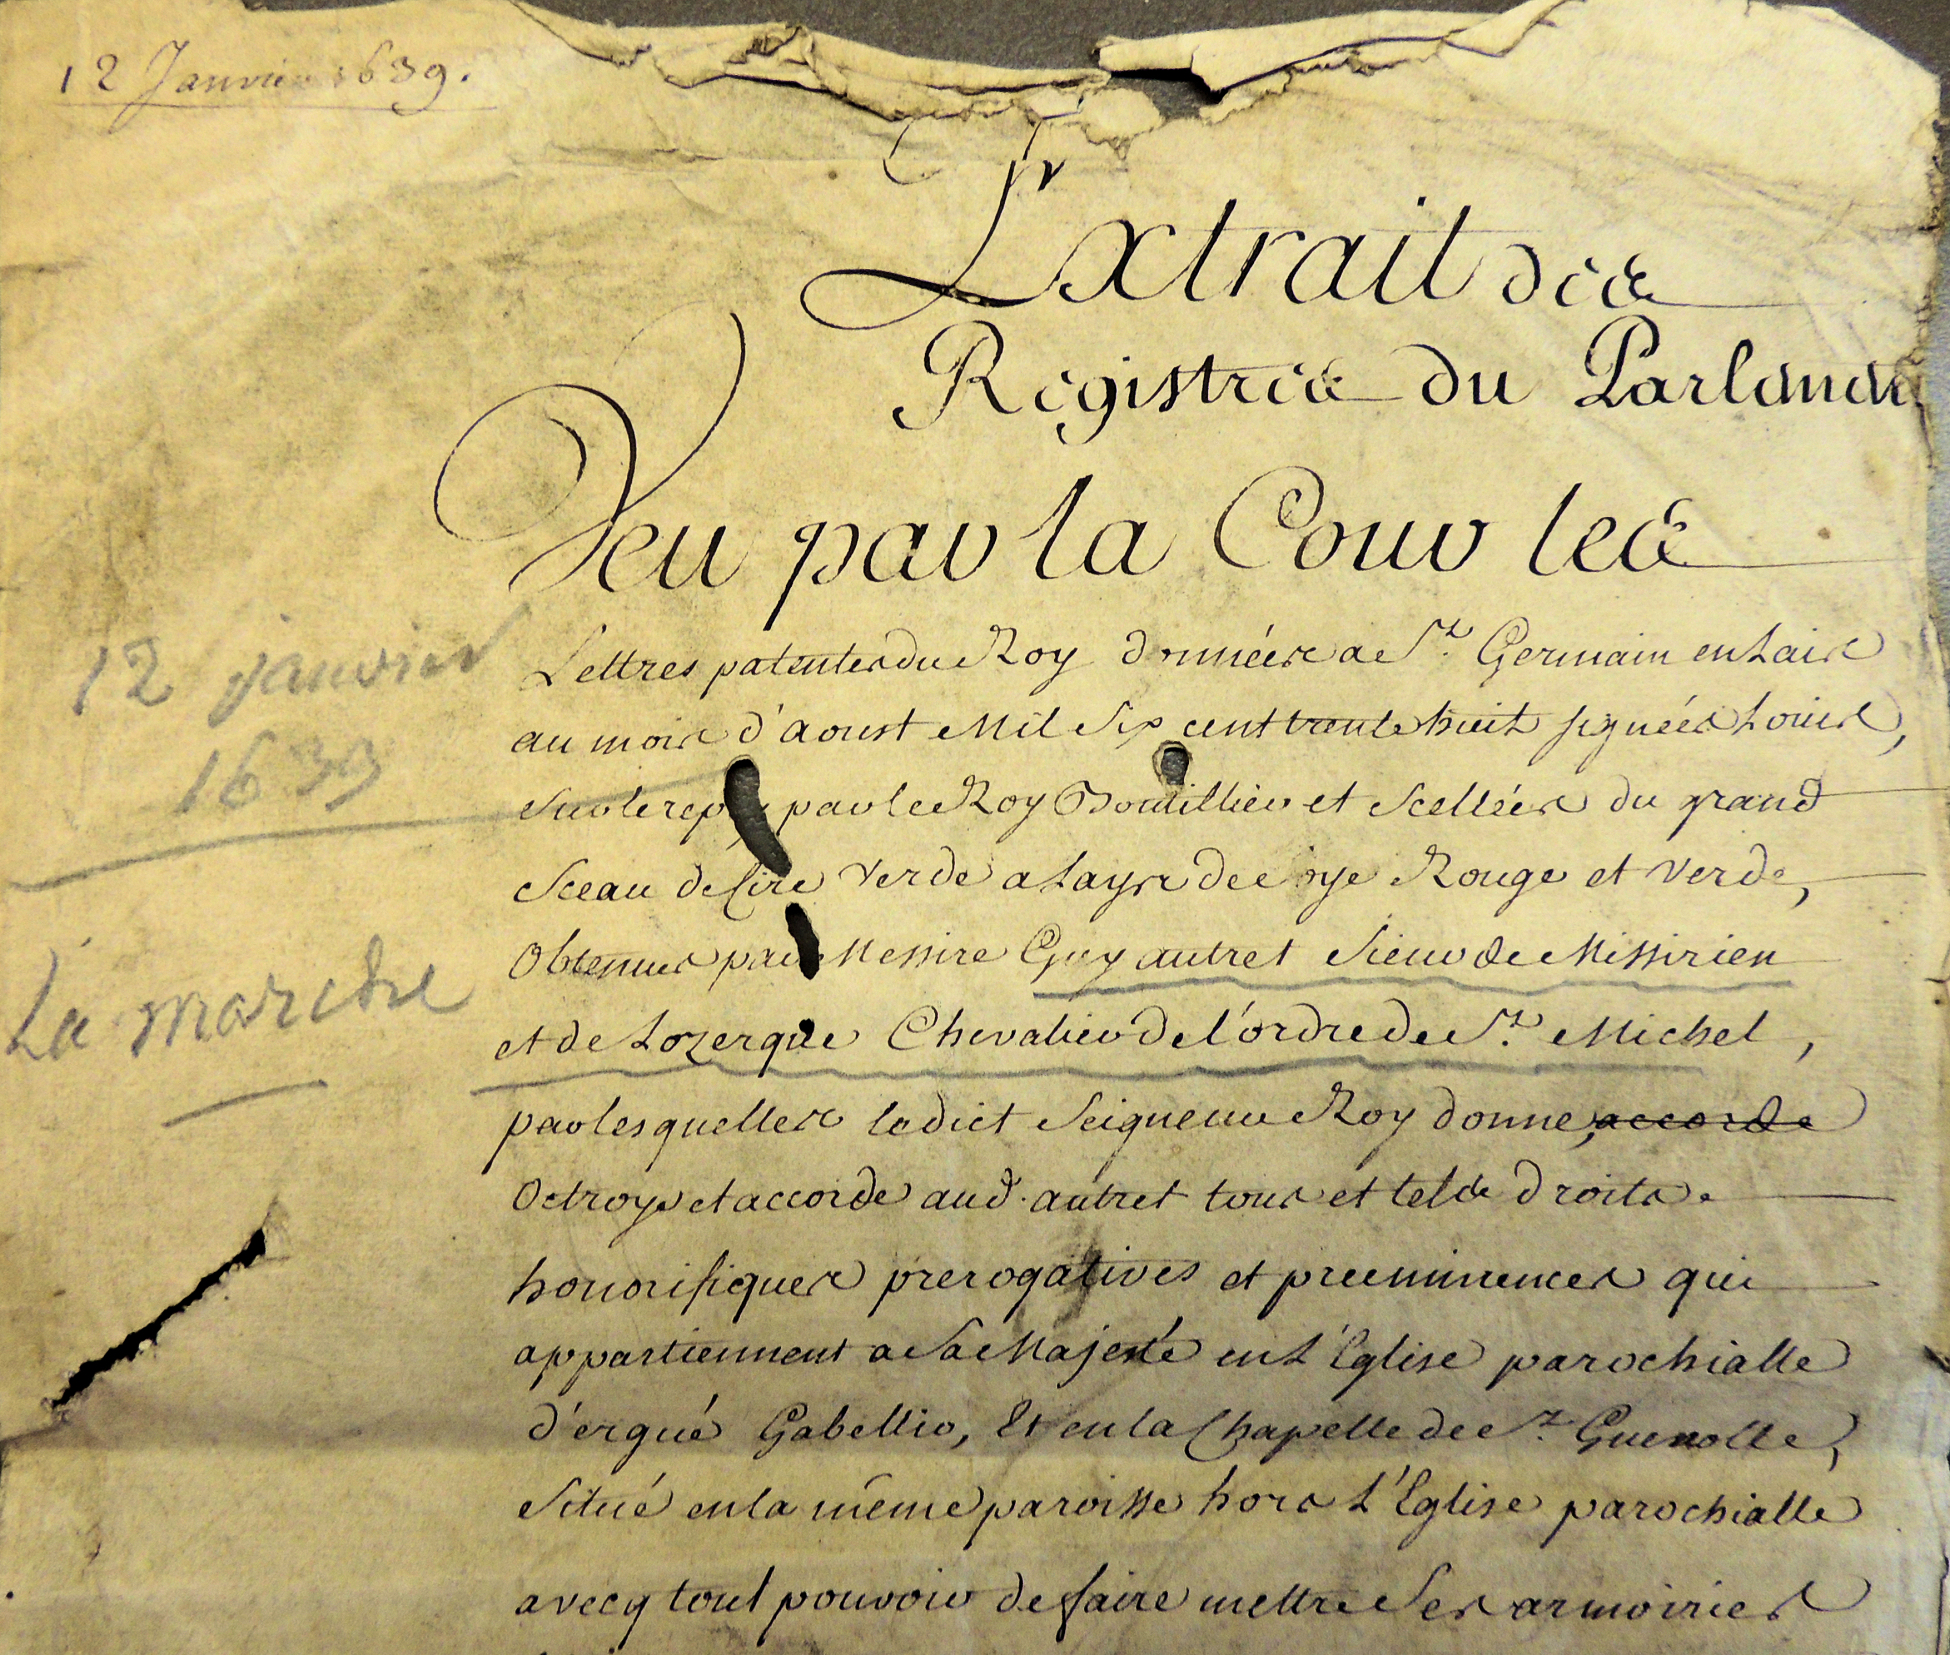 12 Janvier 1639.
Extrait des
Registres du Parlement
Veu par la Cour les
12 janvier
1639
Lettres patentes du Roy données a St. Germain en Laise
au mois d'Aoust Mil Six cent trente huit signées Louis,
Sur le reply par le Roy Boutillier et Scellées du grand
Sceau de Cire Verde a Lays de soye Rouge et Verde,
Obtenues par Messire Guy autret Sieur de Missirien
La marche
et de Lozergue Chevalier de l'ordre de St. Michel,
par lesquelles ledict Seigneur Roy donne, accorde
Octroye et accorde aud. autret tous et telles droits
honorifiques prerogatives et preeminences qui
appartiennent a Sa Majesté en L'Eglise parochialle
d'ergué Gabellic, Et en la Chapelle de St. Guenolle,
Situé en la même paroisse hors L'Eglise parochialle
avecq tout pouvoir de faire mettre Ses armoiries